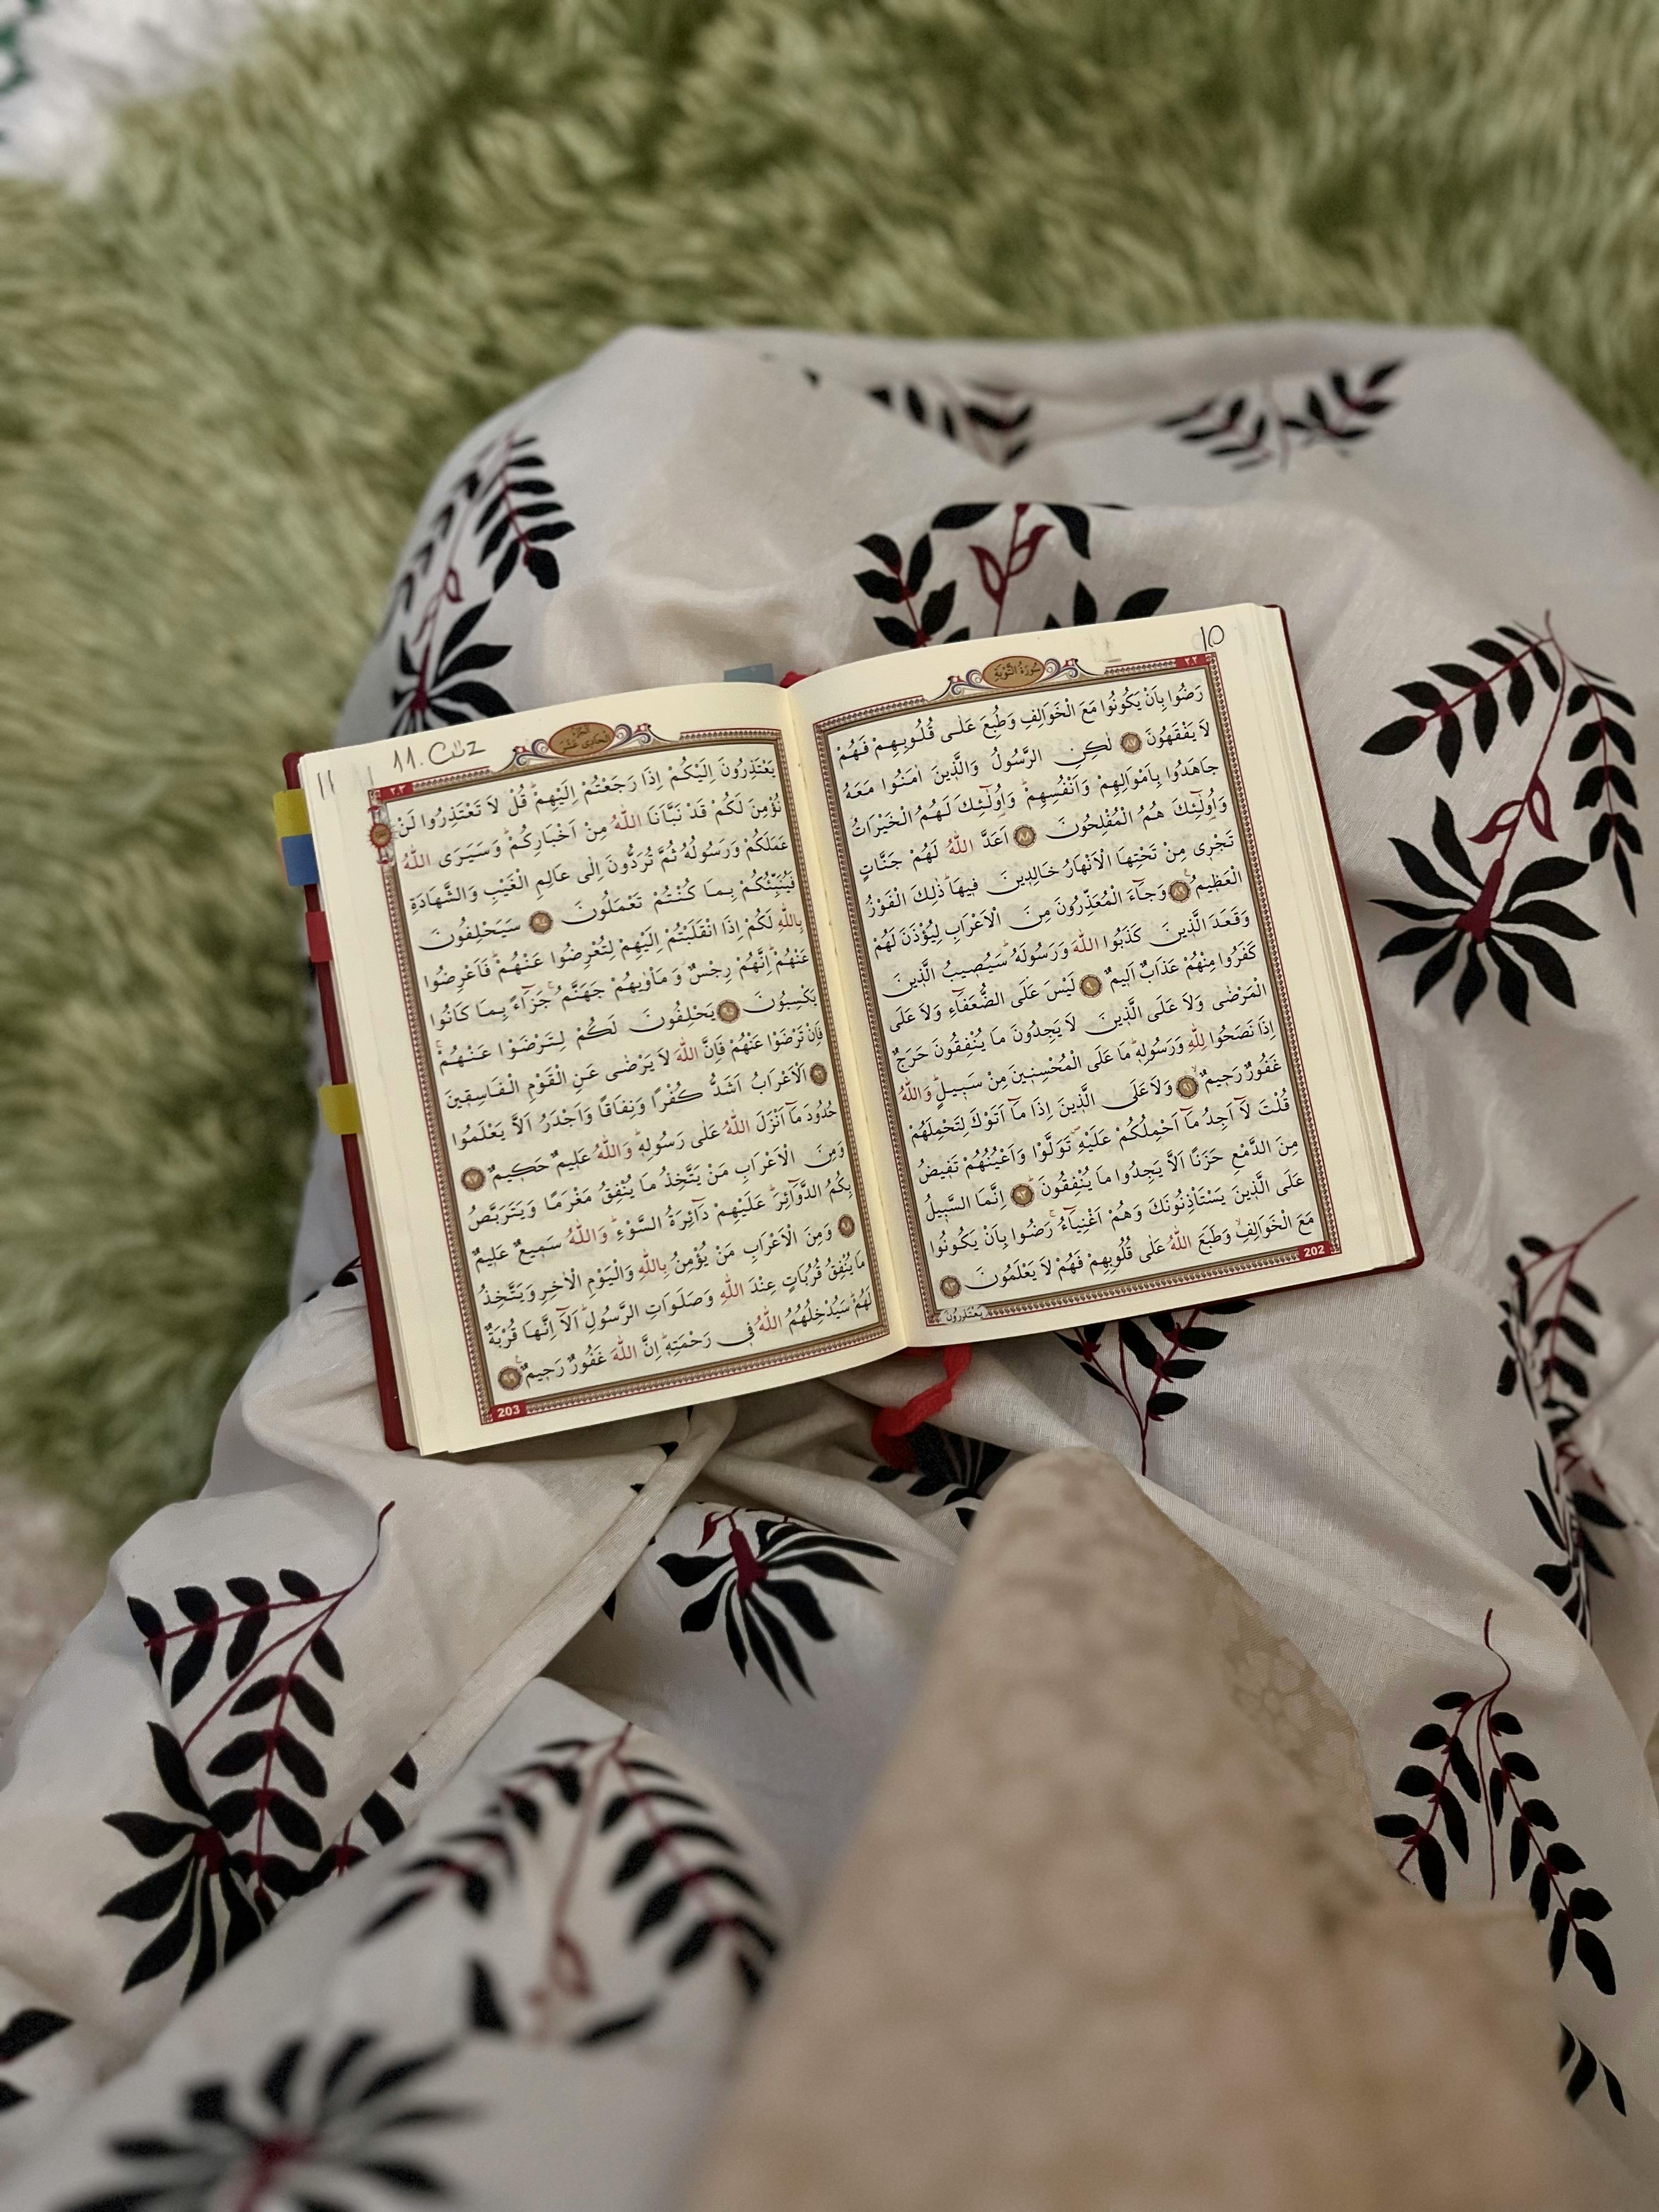 10
سُورَةُ التَّوْبَةِ
٢٠٢
رَضُوا بِاَنْ يَكُونُوا مَعَ الْخَوَالِفِ وَطُبِعَ عَلٰى قُلُوبِهِمْ فَهُمْ
لَا يَفْقَهُونَ ﴿٨٧﴾ لٰكِنِ الرَّسُولُ وَالَّذ۪ينَ اٰمَنُوا مَعَهُ
جَاهَدُوا بِاَمْوَالِهِمْ وَاَنْفُسِهِمْ وَاُو۬لٰٓئِكَ لَهُمُ الْخَيْرَاتُ
وَاُو۬لٰٓئِكَ هُمُ الْمُفْلِحُونَ ﴿٨٨﴾ اَعَدَّ اللّٰهُ لَهُمْ جَنَّاتٍ
تَجْر۪ي مِنْ تَحْتِهَا الْاَنْهَارُ خَالِد۪ينَ ف۪يهَا ذٰلِكَ الْفَوْزُ
الْعَظ۪يمُ ﴿٨٩﴾ وَجَٓاءَ الْمُعَذِّرُونَ مِنَ الْاَعْرَابِ لِيُؤْذَنَ لَهُمْ
وَقَعَدَ الَّذ۪ينَ كَذَبُوا اللّٰهَ وَرَسُولَهُ سَيُص۪يبُ الَّذ۪ينَ
كَفَرُوا مِنْهُمْ عَذَابٌ اَل۪يمٌ ﴿٩٠﴾ لَيْسَ عَلَى الضُّعَفَٓاءِ وَلَا عَلَى
الْمَرْضٰى وَلَا عَلَى الَّذ۪ينَ لَا يَجِدُونَ مَا يُنْفِقُونَ حَرَجٌ
اِذَا نَصَحُوا لِلّٰهِ وَرَسُولِه۪ مَا عَلَى الْمُحْسِن۪ينَ مِنْ سَب۪يلٍ وَاللّٰهُ
غَفُورٌ رَح۪يمٌ ﴿٩١﴾ وَلَا عَلَى الَّذ۪ينَ اِذَا مَٓا اَتَوْكَ لِتَحْمِلَهُمْ
قُلْتَ لَٓا اَجِدُ مَٓا اَحْمِلُكُمْ عَلَيْهِ تَوَلَّوْا وَاَعْيُنُهُمْ تَف۪يضُ
مِنَ الدَّمْعِ حَزَنًا اَلَّا يَجِدُوا مَا يُنْفِقُونَ ﴿٩٢﴾ اِنَّمَا السَّب۪يلُ
عَلَى الَّذ۪ينَ يَسْتَأْذِنُونَكَ وَهُمْ اَغْنِيَٓاءُ رَضُوا بِاَنْ يَكُونُوا
مَعَ الْخَوَالِفِ وَطَبَعَ اللّٰهُ عَلٰى قُلُوبِهِمْ فَهُمْ لَا يَعْلَمُونَ ﴿٩٣﴾
يَعْتَذِرُونَ
202
11
11. Cüz
الْجُزْءُ الْحَادِى عَشَرَ
٢٠٣
يَعْتَذِرُونَ اِلَيْكُمْ اِذَا رَجَعْتُمْ اِلَيْهِمْ قُلْ لَا تَعْتَذِرُوا لَنْ
نُؤْمِنَ لَكُمْ قَدْ نَبَّاَنَا اللّٰهُ مِنْ اَخْبَارِكُمْ وَسَيَرَى اللّٰهُ
عَمَلَكُمْ وَرَسُولُهُ ثُمَّ تُرَدُّونَ اِلٰى عَالِمِ الْغَيْبِ وَالشَّهَادَةِ
فَيُنَبِّئُكُمْ بِمَا كُنْتُمْ تَعْمَلُونَ ﴿٩٤﴾ سَيَحْلِفُونَ
بِاللّٰهِ لَكُمْ اِذَا انْقَلَبْتُمْ اِلَيْهِمْ لِتُعْرِضُوا عَنْهُمْ فَاَعْرِضُوا
عَنْهُمْ اِنَّهُمْ رِجْسٌ وَمَأْوٰيهُمْ جَهَنَّمُ جَزَٓاءً بِمَا كَانُوا
يَكْسِبُونَ ﴿٩٥﴾ يَحْلِفُونَ لَكُمْ لِتَرْضَوْا عَنْهُمْ
فَاِنْ تَرْضَوْا عَنْهُمْ فَاِنَّ اللّٰهَ لَا يَرْضٰى عَنِ الْقَوْمِ الْفَاسِق۪ينَ
﴿٩٦﴾ اَلْاَعْرَابُ اَشَدُّ كُفْرًا وَنِفَاقًا وَاَجْدَرُ اَلَّا يَعْلَمُوا
حُدُودَ مَٓا اَنْزَلَ اللّٰهُ عَلٰى رَسُولِه۪ وَاللّٰهُ عَل۪يمٌ حَك۪يمٌ ﴿٩٧﴾
وَمِنَ الْاَعْرَابِ مَنْ يَتَّخِذُ مَا يُنْفِقُ مَغْرَمًا وَيَتَرَبَّصُ
بِكُمُ الدَّوَٓائِرَ عَلَيْهِمْ دَٓائِرَةُ السَّوْءِ وَاللّٰهُ سَم۪يعٌ عَل۪يمٌ
﴿٩٨﴾ وَمِنَ الْاَعْرَابِ مَنْ يُؤْمِنُ بِاللّٰهِ وَالْيَوْمِ الْاٰخِرِ وَيَتَّخِذُ
مَا يُنْفِقُ قُرُبَاتٍ عِنْدَ اللّٰهِ وَصَلَوَاتِ الرَّسُولِ اَلَٓا اِنَّهَا قُرْبَةٌ
لَهُمْ سَيُدْخِلُهُمُ اللّٰهُ ف۪ي رَحْمَتِه۪ اِنَّ اللّٰهَ غَفُورٌ رَح۪يمٌ ﴿٩٩﴾
203